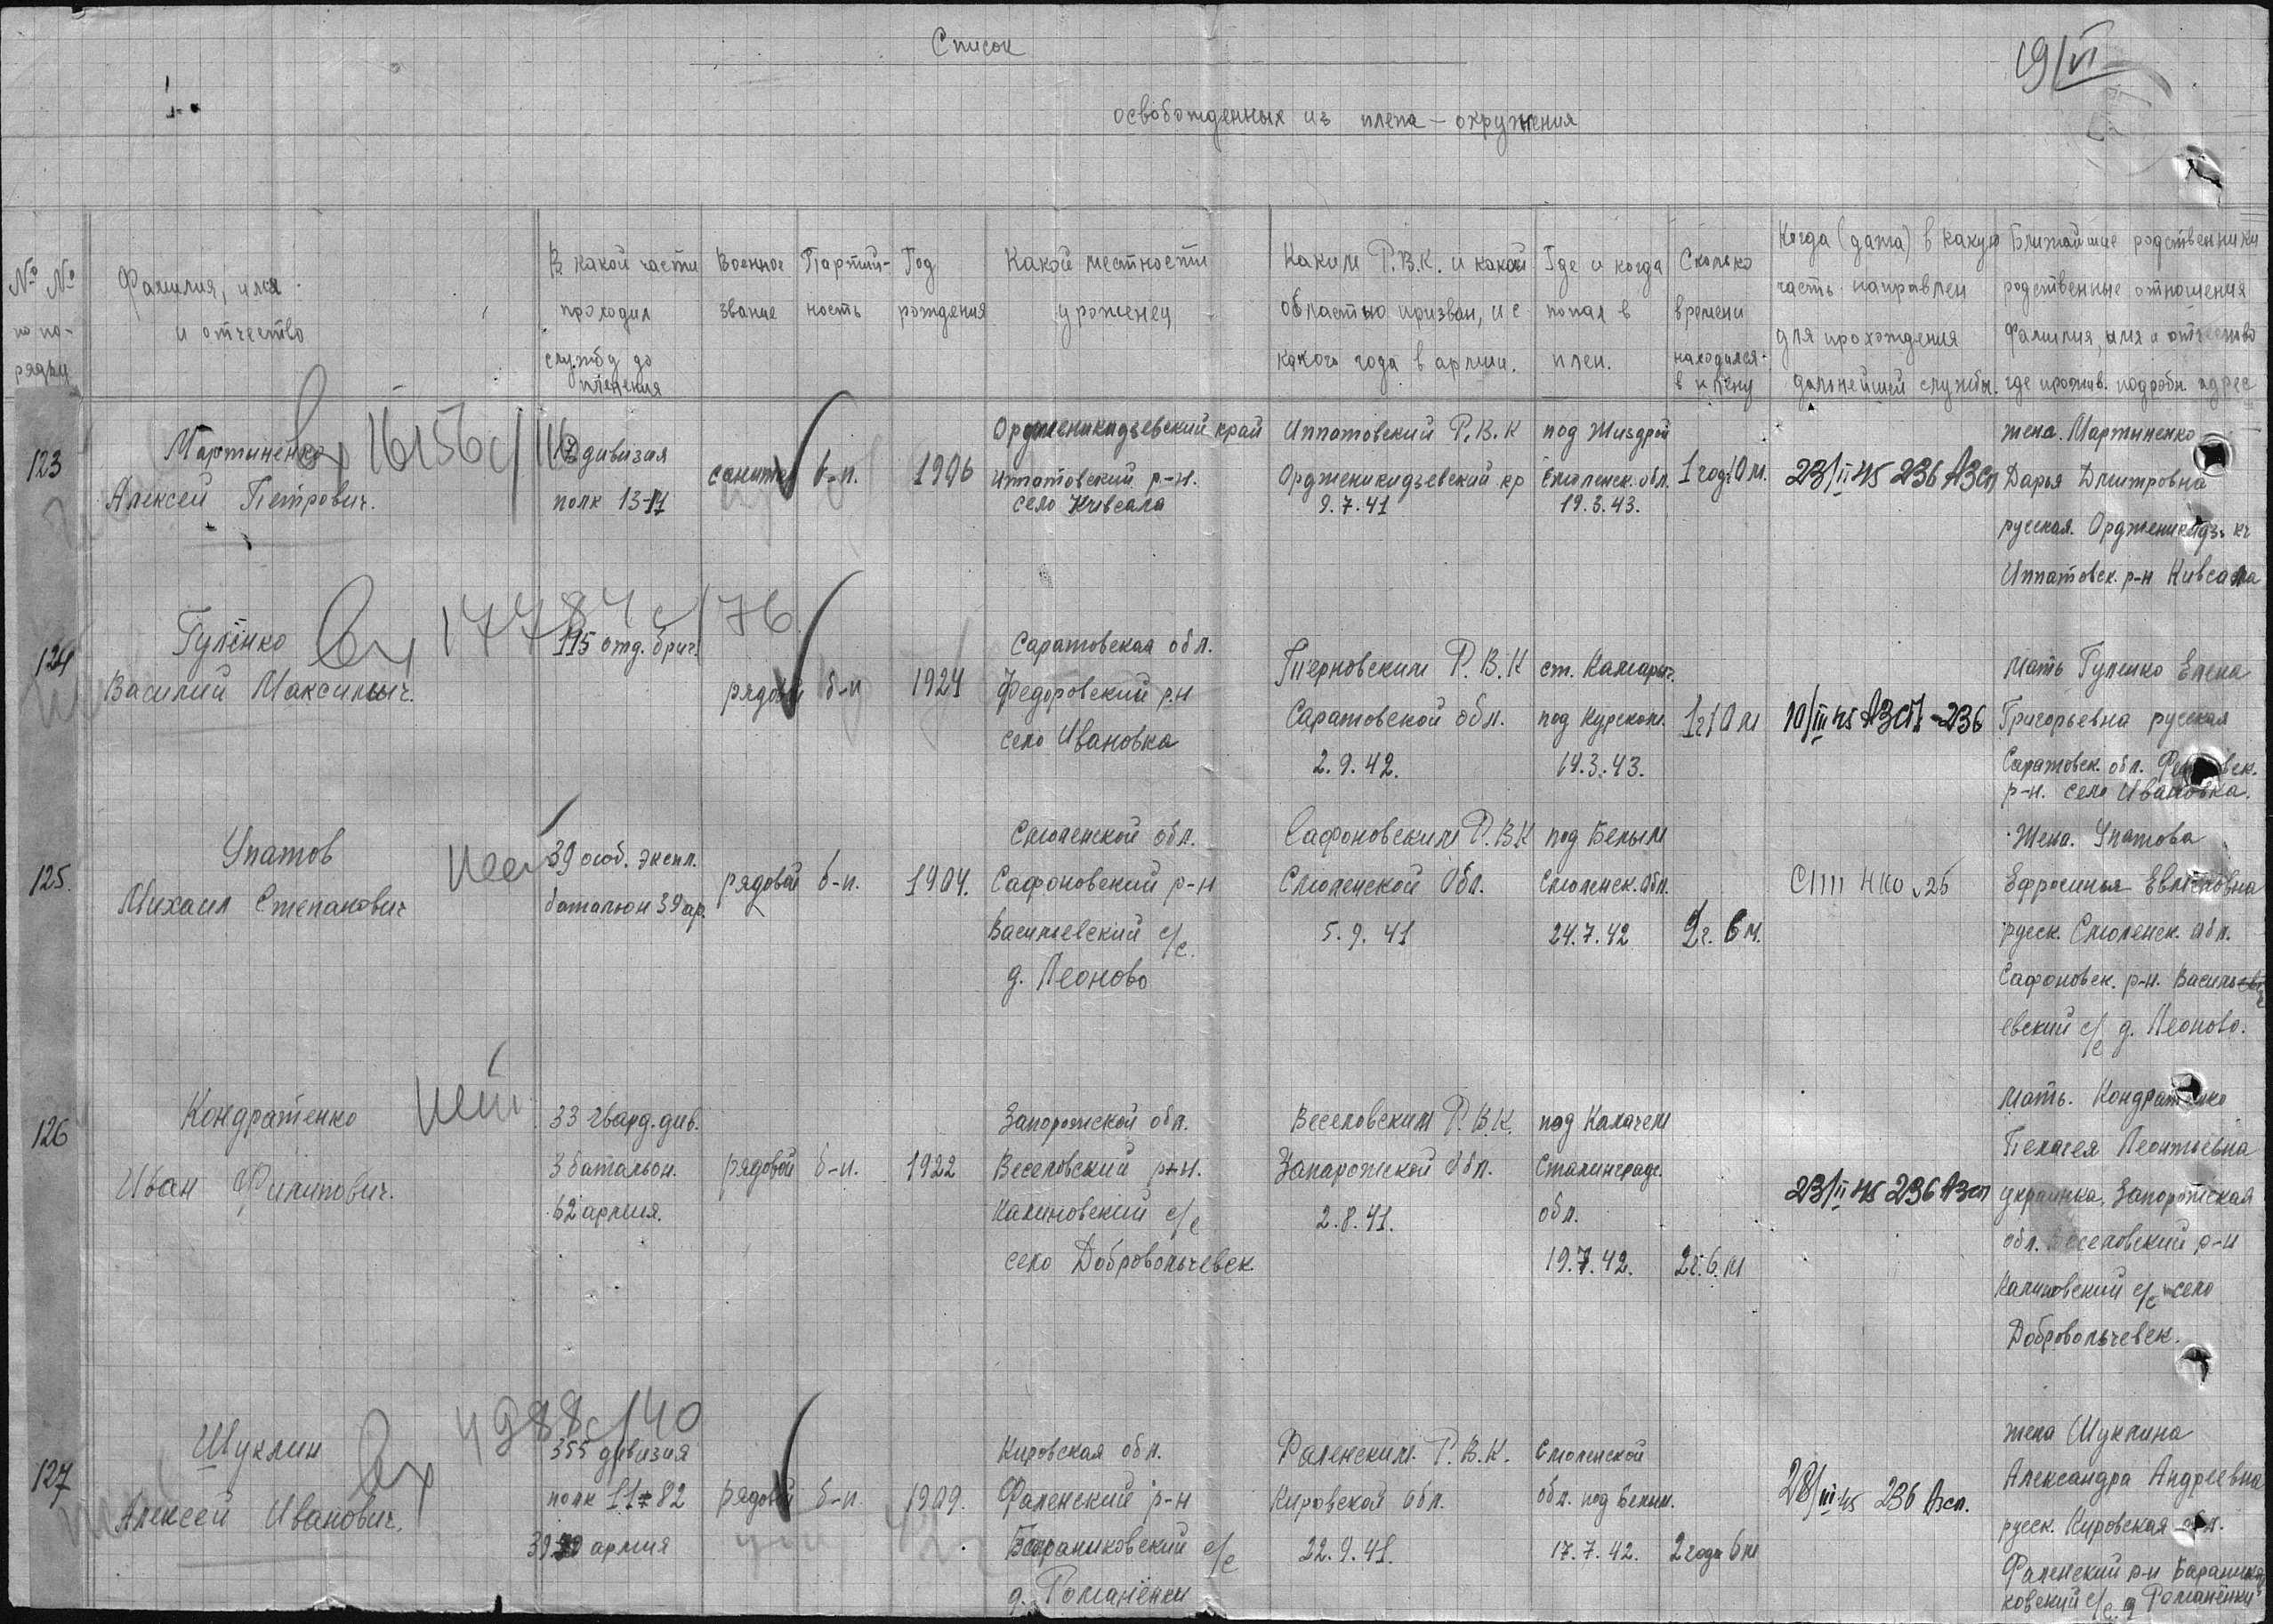 Список
19/VI
освобожденных из плена – окружения
№ № по по-рядку
Фамилия, имя и отчество
В какой части проходил службу до пленения
Военное звание
Партий-ность
Год рождения
Какой местности уроженец
Каким Р.В.К. и какой областью призван, и с какого года в армии.
Где и когда попал в плен.
Сколько времени находился в плену
Когда (дата) в какую часть направлен для прохождения дальнейшей службы.
Ближайшие родственники родственные отношения Фамилия, имя и отчество где прожив. подробн. адрес
123
Мартыненко
Алексей Петрович.
вх 16156с/
дивизия
полк 13-й
санитар
б-п.
1906
Орджоникидзевский край
Ипатовский р-н.
село Кивсала
Иппатовский Р.В.К
Орджоникидзевский кр
9.7.41
под Жиздрой
Смоленск. обл.
19.3.43.
1 год 10 м.
23/II 45 236 АЗсп
жена. Мартыненко
Дарья Дмитровна
русская. Орджоникидз.
Иппатовск. р-н Кивсала
124
Гуленко
Василий Максимыч.
вх 17784с/76
115 отд. бриг.
рядовой
б-п
1924
Саратовская обл.
Федоровский р-н
село Ивановка
Терновским Р.В.К
Саратовской обл.
2.9.42.
ст. Камарич.
под Курском.
14.3.43.
1г 10 м
10/III 45 АЗСП-236
мать Гуленко Елена
Григорьевна русская
Саратовск. обл.
р-н. село Ивановка.
125.
Упатов
Михаил Степанович
нет
39 особ. экспл.
батальон 39 ар.
рядовой
б-п.
1904.
Смоленской обл.
Сафоновский р-н
Васильевский с/с.
д. Леоново
Сафоновским Р.В.К
Смоленской обл.
5.9.41
под Белым
Смоленск. обл.
24.7.42
2г. 6 м.
СПП НКО 25
Жена. Упатова
Ефросинья
русск. Смоленск. обл.
Сафоновск. р-н. Василь
евский с/с д. Леоново.
126
Кондратенко
Иван Филипович.
нет
33 гвард. див.
3 батальон.
62 армия.
рядовой
б-п.
1922
Запорожской обл.
Веселовский р-н.
Калиновский с/с
село Добровольчевск
Веселовским Р.В.К.
Запарожской обл.
2.8.41.
под Калачем
Сталинградс.
обл.
19.7.42.
2г. 6. м
23/II 45 236 АЗсп
мать. Кондратенко
Пелагея Леонтьевна
украинка, Запорожская
обл. Веселовский р-н
Калиновский с/с село
Добровольчевск.
127
Шуклин
Алексей Иванович.
вх 4988с/40
355 дивизия
полк 1182
39 армия
рядовой
б-п
1909.
Кировская обл.
Фаленский р-н
Бараниковский с/с
д. Романёнки
Фаленским. Р.В.К.
Кировской обл.
22.9.41.
Смоленской
обл. под Белым.
17.7.42.
2 года 6 м
28/III 45 236 Азсп.
жена Шуклина
Александра Андреевна
русск. Кировская обл.
Фаленский р-н Барани
ковский с/с д Романёнки